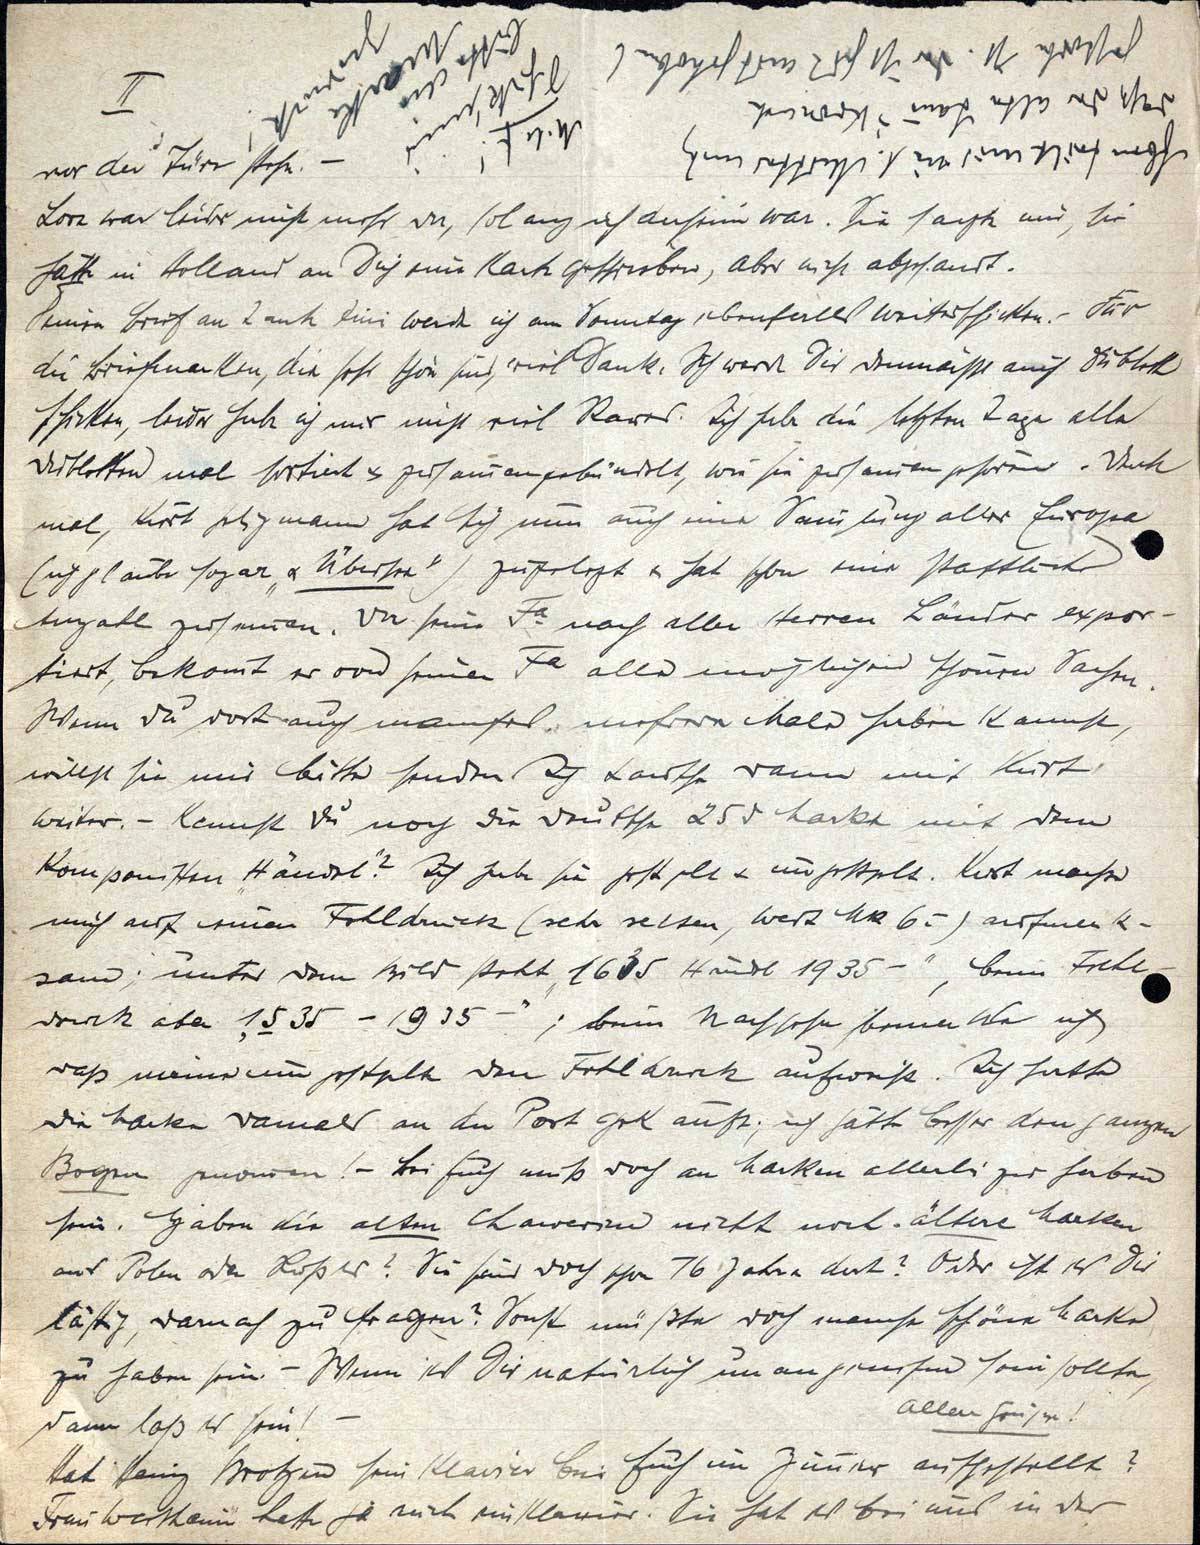 II
vor der Türe steht. –
Lore war leider nicht mehr da, solang ich daheim war. Sie sagte mir, sie
hätte in Holland an Dich eine Karte geschrieben, aber nicht abgesandt.
Deinen Brief an Tante werde ich am Sonntag ebenfalls weiterschicken. – Für
die Briefmarken, die sehr schön sind, viel Dank. Ich werde Dir demnächst auch Dublett
schicken, leider habe ich nur nicht viel Rares. Ich habe die letzten Tage alle
Dubletten mal sortiert & zusammengebündelt, wie sie zusammen gehören. Denk
mal, Kurt hat sich nun auch eine Sammlung aller Europa
(ich glaube sogar "& Übersee") zugelegt & hat schon eine stattliche
Anzahl zusammen. Da seine Fa nach aller Herren Länder expor-
tiert, bekommt er von seiner Fa alle möglichen schönen Sachen.
Wenn Du dort auch manches mehrere Male haben kannst,
willst sie mir bitte senden. Ich tausche dann mit Kurt
weiter. – Kennst Du noch die deutsche 25 d Marke mit dem
Komponisten "Händel"? Ich habe sie gestpelt & ungestpelt. Kurt machte
mich auf einen Fehldruck (sehr selten, Wert Mk 6.–) aufmerk-
sam; unter dem Bild steht "1635 Händl 1935 –", beim Fehl-
druck aber "1535 – 1935 –"; beim Nachsehen bemerkte ich
daß meine ungestplte den Fehldruck aufweist. Ich hatte
die Marke damals an der Post gekauft; ich hätte besser den ganzen
Bogen genommen! – Bei Euch muß doch an Marken allerlei zu haben
sein. Haben die alten nicht noch ältere Marken
aus Polen oder Rußld? Sie sind doch schon 76 Jahre dort? Oder ist es Dir
lästig, danach zu fragen? Sonst müßte doch manche schöne Marke
zu haben sein. – Wenn es Dir natürlich unangenehm sein sollte,
dann laß es sein! –
Allen Grüße!
Hat Heinz sein Klavier bei Euch im Zimmer aufgestellt?
Frau Wertheim hatte ja auch ein Klavier. Sie hat es bei uns in der